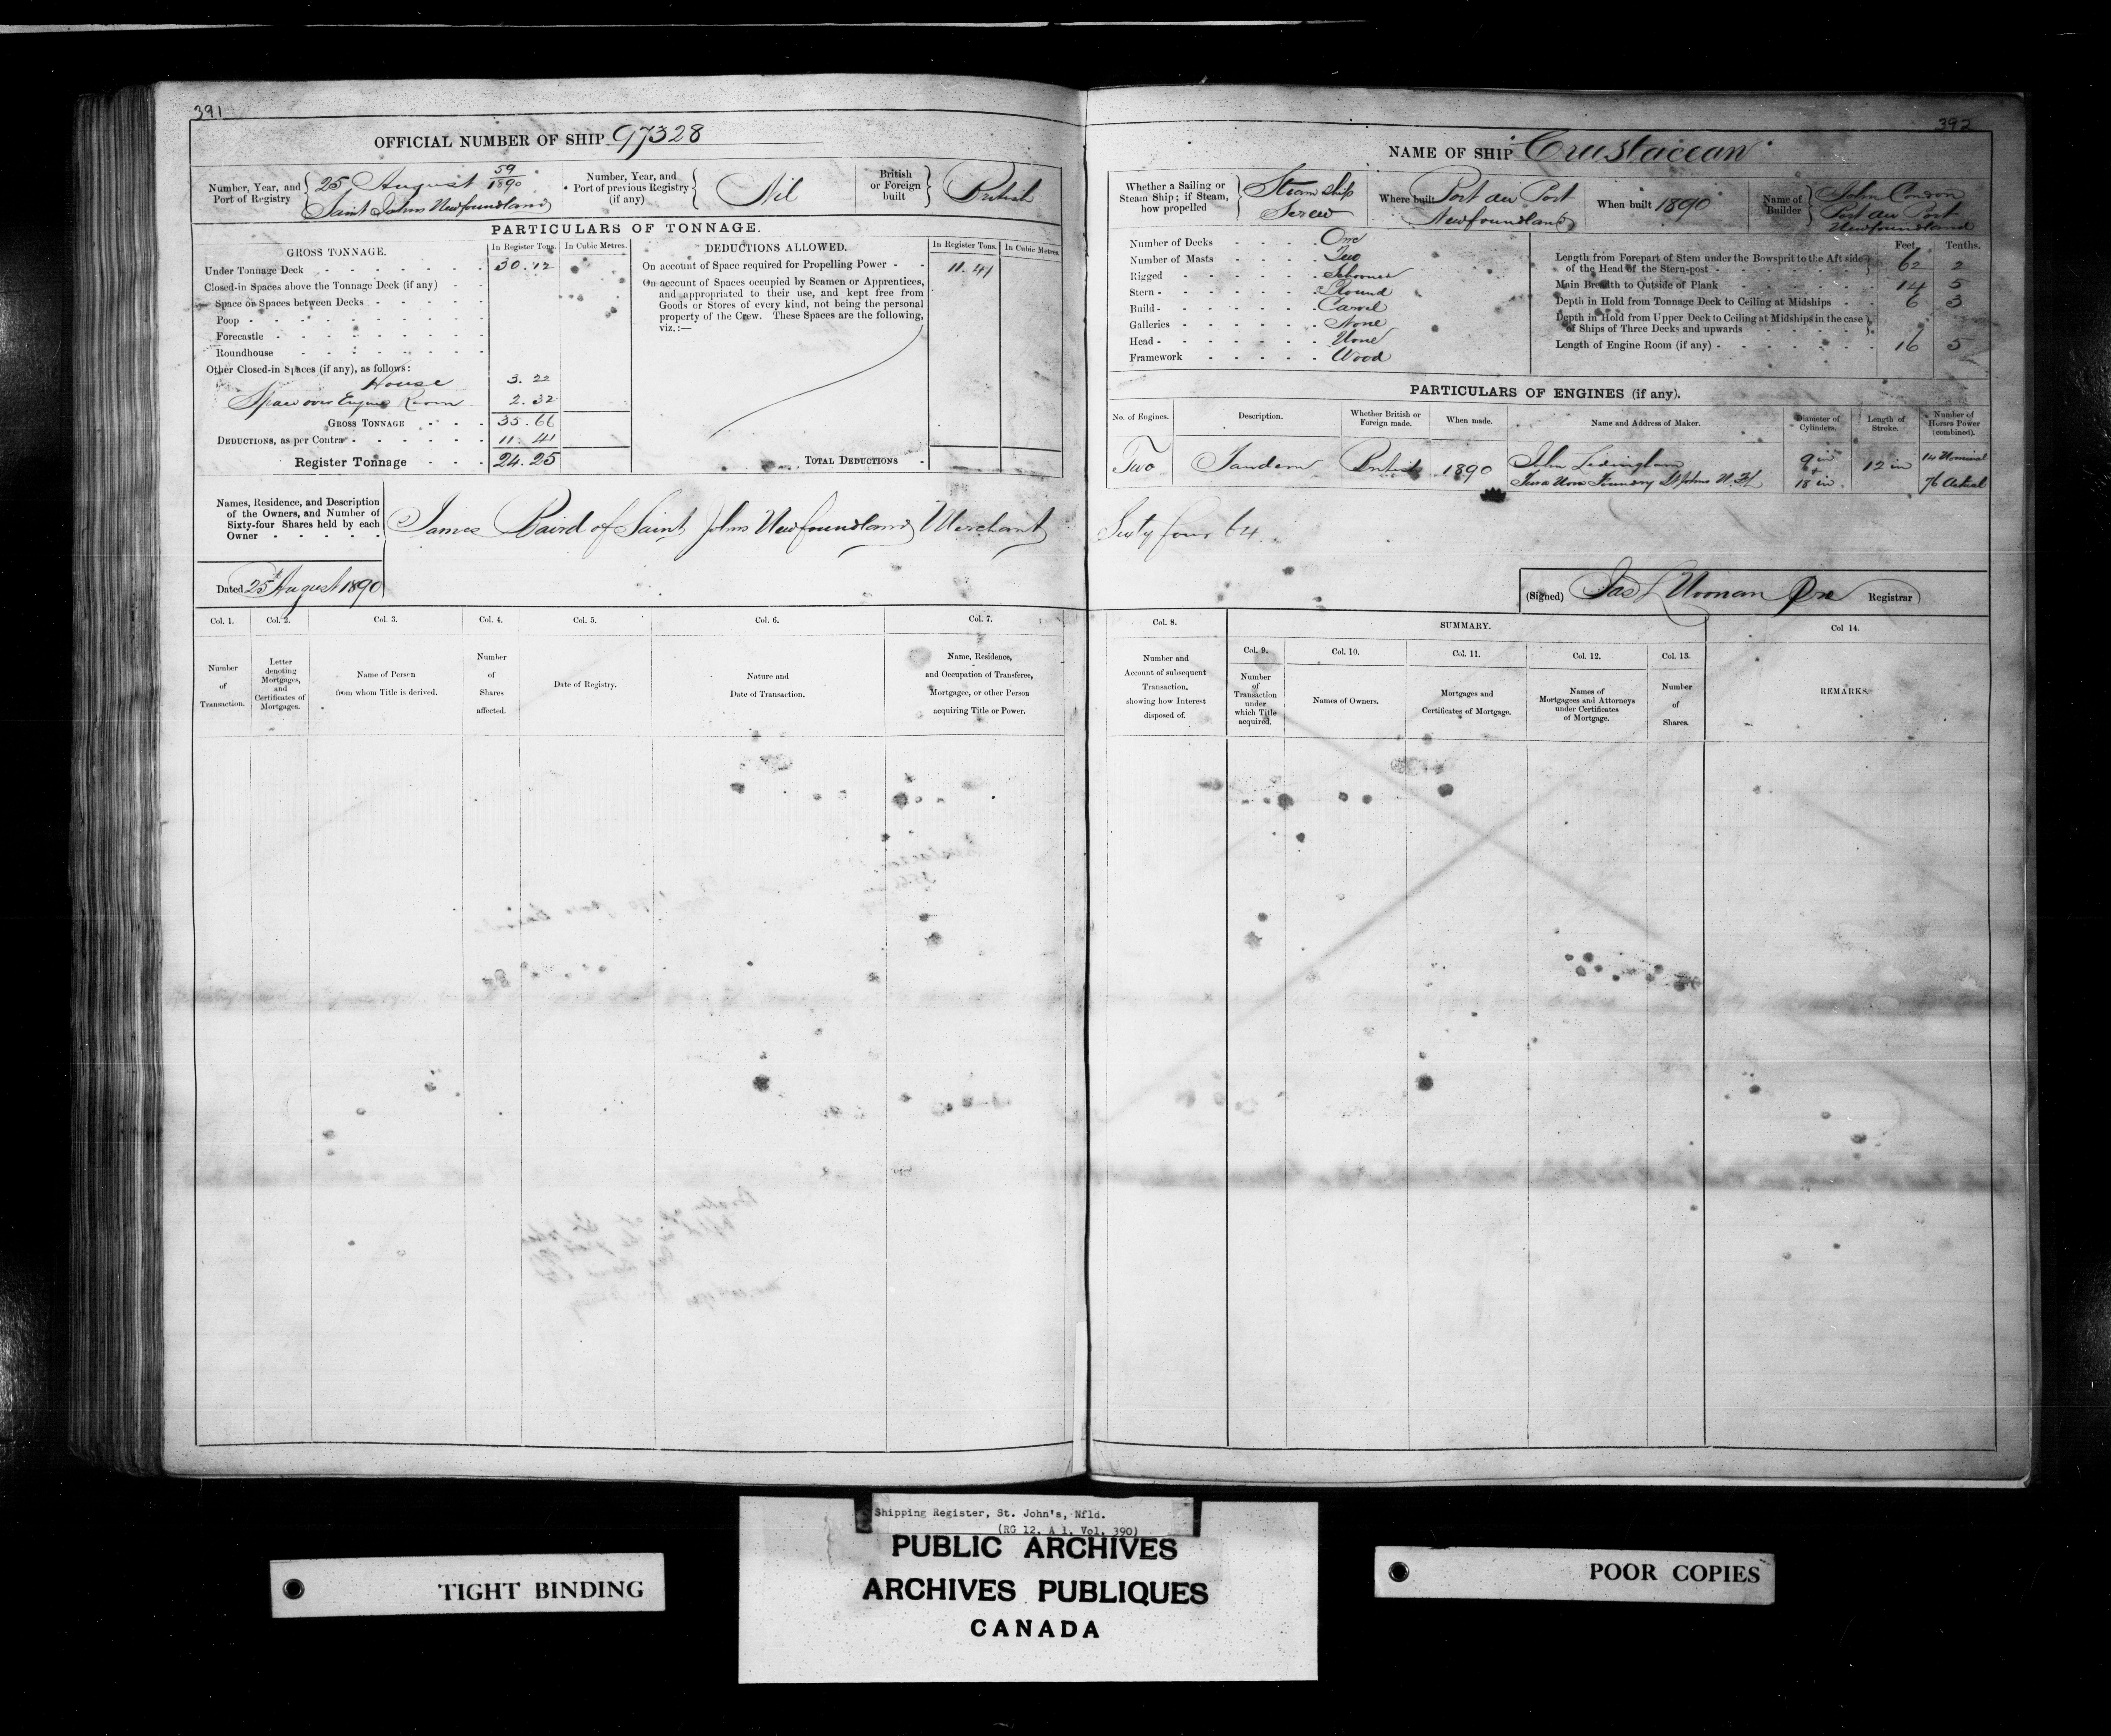 391
OFFICIAL NUMBER OF SHIP 97328
Number, Year, and Port of Registry
25 August 59/1890
Saint Johns Newfoundland
Number, Year, and Port of previous Registry (if any)
Nil
British or Foreign built
British
PARTICULARS OF TONNAGE.
GROSS TONNAGE.
In Register Tons.
In Cubic Metres.
Under Tonnage Deck 30.12
Closed-in Spaces above the Tonnage Deck (if any)
Space or Spaces between Decks
Poop
Forecastle
Roundhouse
Other Closed-in Spaces (if any), as follows:
House 3.22
Space over Engine Room 2.32
GROSS TONNAGE 35.66
DEDUCTIONS, as per Contra 11.41
Register Tonnage 24.25
DEDUCTIONS ALLOWED.
In Register Tons.
In Cubic Metres.
On account of Space required for Propelling Power 11.41
On account of Spaces occupied by Seamen or Apprentices,
and appropriated to their use, and kept free from
Goods or Stores of every kind, not being the personal
property of the Crew. These Spaces are the following,
viz.:—
TOTAL DEDUCTIONS
Names, Residence, and Description
of the Owners, and Number of
Sixty-four Shares held by each
Owner
James Baird of Saint Johns Newfoundland Merchant
Dated 25 August 1890
Col. 1.
Number
of
Transaction.
Col. 2.
Letter
denoting
Mortgages,
and
Certificates of
Mortgages.
Col. 3.
Name of Person
from whom Title is derived.
Col. 4.
Number
of
Shares
affected.
Col. 5.
Date of Registry.
Col. 6.
Nature and
Date of Transaction.
Col. 7.
Name, Residence,
and Occupation of Transferee,
Mortgagee, or other Person
acquiring Title or Power.
392
NAME OF SHIP Crustacean
Whether a Sailing or
Steam Ship; if Steam,
how propelled
Steam Ship
Screw
Where built Port au Port
Newfoundland
When built 1890
Name of Builder
John Condon
Port au Port
Newfoundland
Number of Decks One
Number of Masts Two
Rigged Schooner
Stern Round
Build Carvel
Galleries None
Head None
Framework Wood
Feet. Tenths.
Length from Forepart of Stem under the Bowsprit to the Aft side
of the Head of the Stern-post 62 2
Main Breadth to Outside of Plank 14 5
Depth in Hold from Tonnage Deck to Ceiling at Midships 6 3
Depth in Hold from Upper Deck to Ceiling at Midships in the case
of Ships of Three Decks and upwards
Length of Engine Room (if any) 16 5
PARTICULARS OF ENGINES (if any).
No. of Engines.
Description.
Whether British or Foreign made.
When made.
Name and Address of Maker.
Diameter of Cylinders.
Length of Stroke.
Number of Horses Power (combined).
Two
Tandem
British
1890
John
Foundry St Johns N.F.
9 in
18 in
12 in
14 Nominal
76 Actual
Sixty four 64
(Signed) Registrar
Col. 8.
Number and
Account of subsequent
Transaction,
showing how Interest
disposed of.
SUMMARY.
Col. 9.
Number
of
Transaction
under
which Title
acquired.
Col. 10.
Names of Owners.
Col. 11.
Mortgages and
Certificates of Mortgage.
Col. 12.
Names of
Mortgagees and Attorneys
under Certificates
of Mortgage.
Col. 13.
Number
of
Shares.
Col 14.
REMARKS.
Shipping Register, St. John's, Nfld.
(RG 12, A 1, Vol. 390)
PUBLIC ARCHIVES
ARCHIVES PUBLIQUES
CANADA
TIGHT BINDING
POOR COPIES